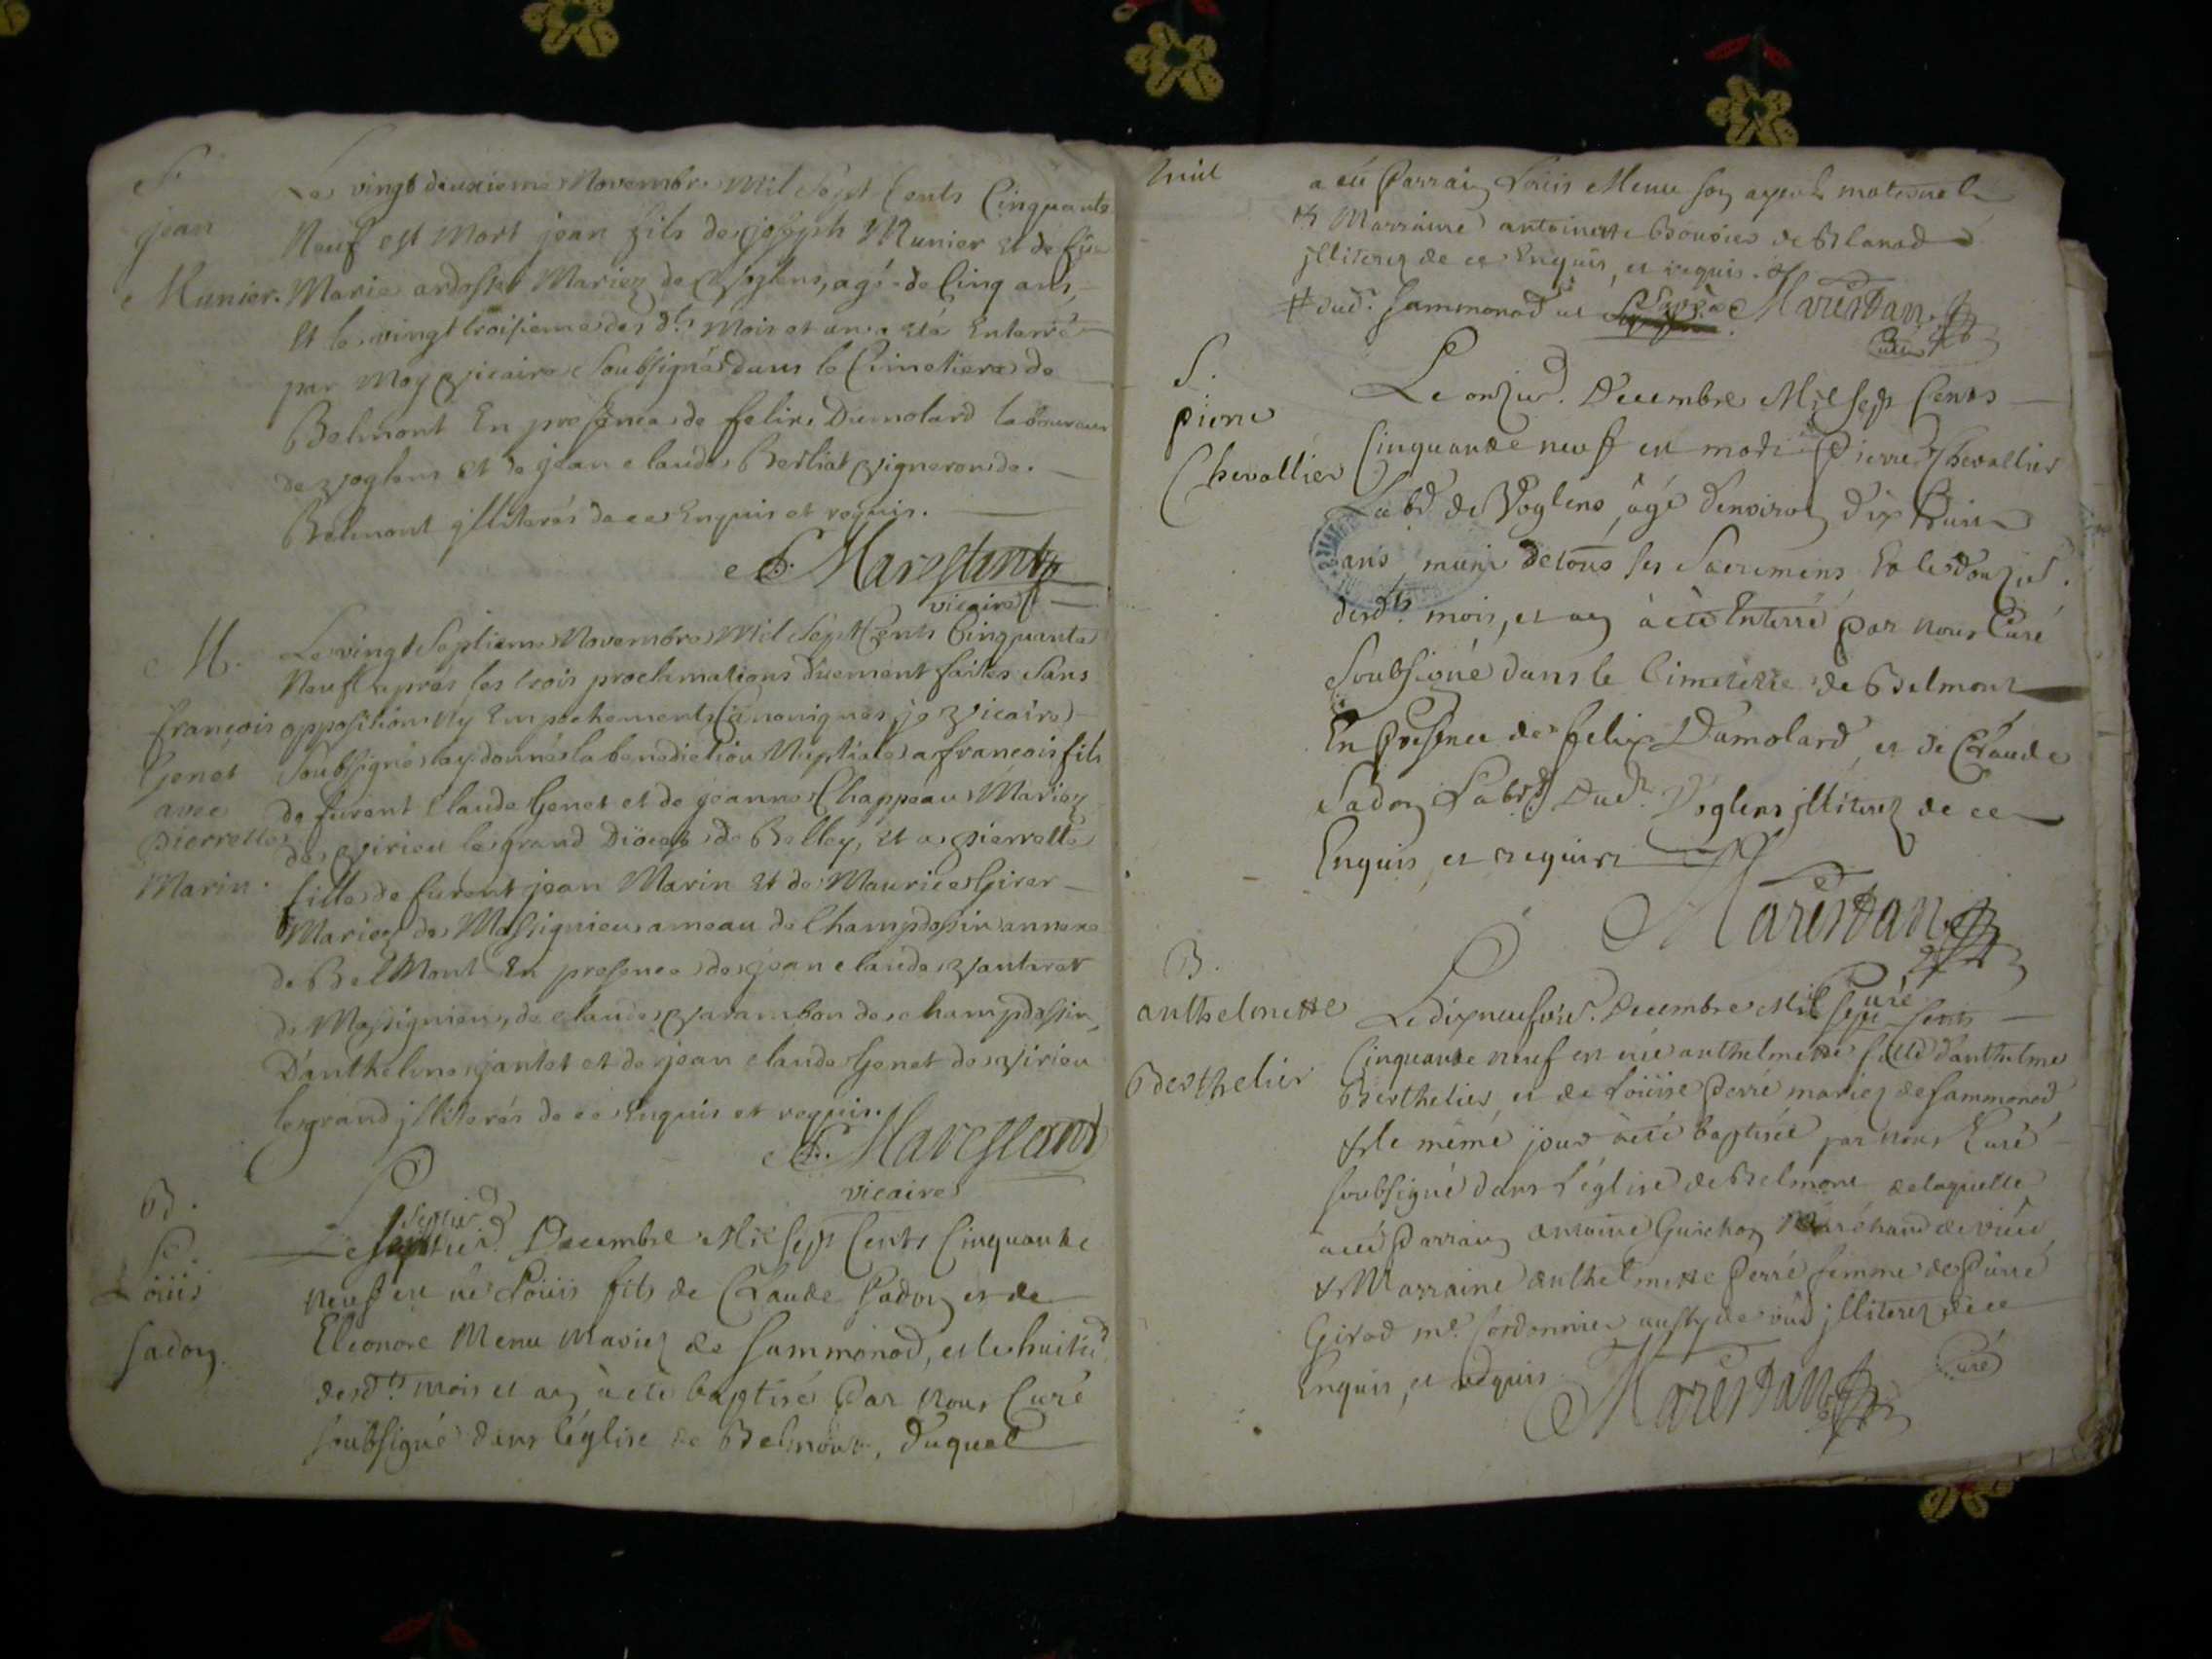 S.
jean
Munier.
Le vingt deuxieme Novembre Mil Sept Cents Cinquante
Neuf est Mort jean fils de joseph Munier et de füe
Marie Mariez de Voglens, agé de Cinq ans,
Et le vingt troisieme des dts Mois et an a eté Enterré
par Moy vicaire Soubsigné dans le Cimetiere de
Belmont En presence de felix Dumolard laboureur
de voglens et de jean claude Berliat vigneron de
Belmont illiterés de ce Enquis et requis.
Marestant
vicaire
M.
françois
Genet
avec
pierrette
Marin.
Le vingt Septieme Novembre Mil Sept Cents Cinquante
Neuf apres les trois proclamations düement faites Sans
opposition ny Empechements Canoniques je vicaire
Soubsigné ay donné la benediction Nuptiale a francois fils
de furent Claude Genet et de jeanne Chappeau Mariez
de virieu le grand Diocese de Belley, et a pierrette
fille de furent jean Marin et de Maurice Girer
Mariez de Massignieu ameau de Champdossin annexe
de BelMont En presence de jean claude vanteret
de Massignieu, de claude varambon de champdossin,
D'anthelme jantet et de jean claude Genet de virieu
le grand illiterés de ce Enquis et requis.
Marestant
vicaire
B.
Loüis
Sadon.
Le septie. Decembre Mil sept Cents Cinquante
neuf est né Loüis fils de Claude Sadon et de
Eleonore Menu Mariez de Sammonod, et le huitie.
desd.ts mois et an à eté baptisé Par nous Curé
soubsigné dans l'église de Belmont, duquel
a eü Parrain Loüis Menu son ayeul maternel
et Marraine antoinette Bouvier de Blanod
illiterez de ce Enquis, et requis.
# dud.t Sammonod et
Marestan
Curé
S.
pierre
Chevallier
Le onzie. Decembre Mil sept Cents
Cinquante neuf est mort Pierre Chevallier
Lab.d de Voglens, âgé denviron dix huit
ans muni de tous ses Sacremens Et le douzie.
desd.ts mois, et an à eté Enterré par nous Curé
Soubsigné dans le Cimetière de Belmont
En Presence de felix Dumolard, et de Claude
Sadon Lab.rs Dud.t Voglens illiterez de ce
Enquis, et requis
Marestan
Curé
B.
anthelmette
Berthelier
Le dixneufvie. Decembre Mil sept Cents
Cinquante neuf est née anthelmette fille d'anthelme
Berthelier, et de Loüise Perré mariez de Sammonod
et le même jour à eté baptisée par nous Curé
soubsigné dans l'église de Belmont de laquelle
a eü Parrain antoine Guichon Maréchand de vieu
et Marraine anthelmette Perré femme de Pierre
Girod me. Cordonnier aussy de vieu illiterez de ce
Enquis, et requis
Marestan
Curé